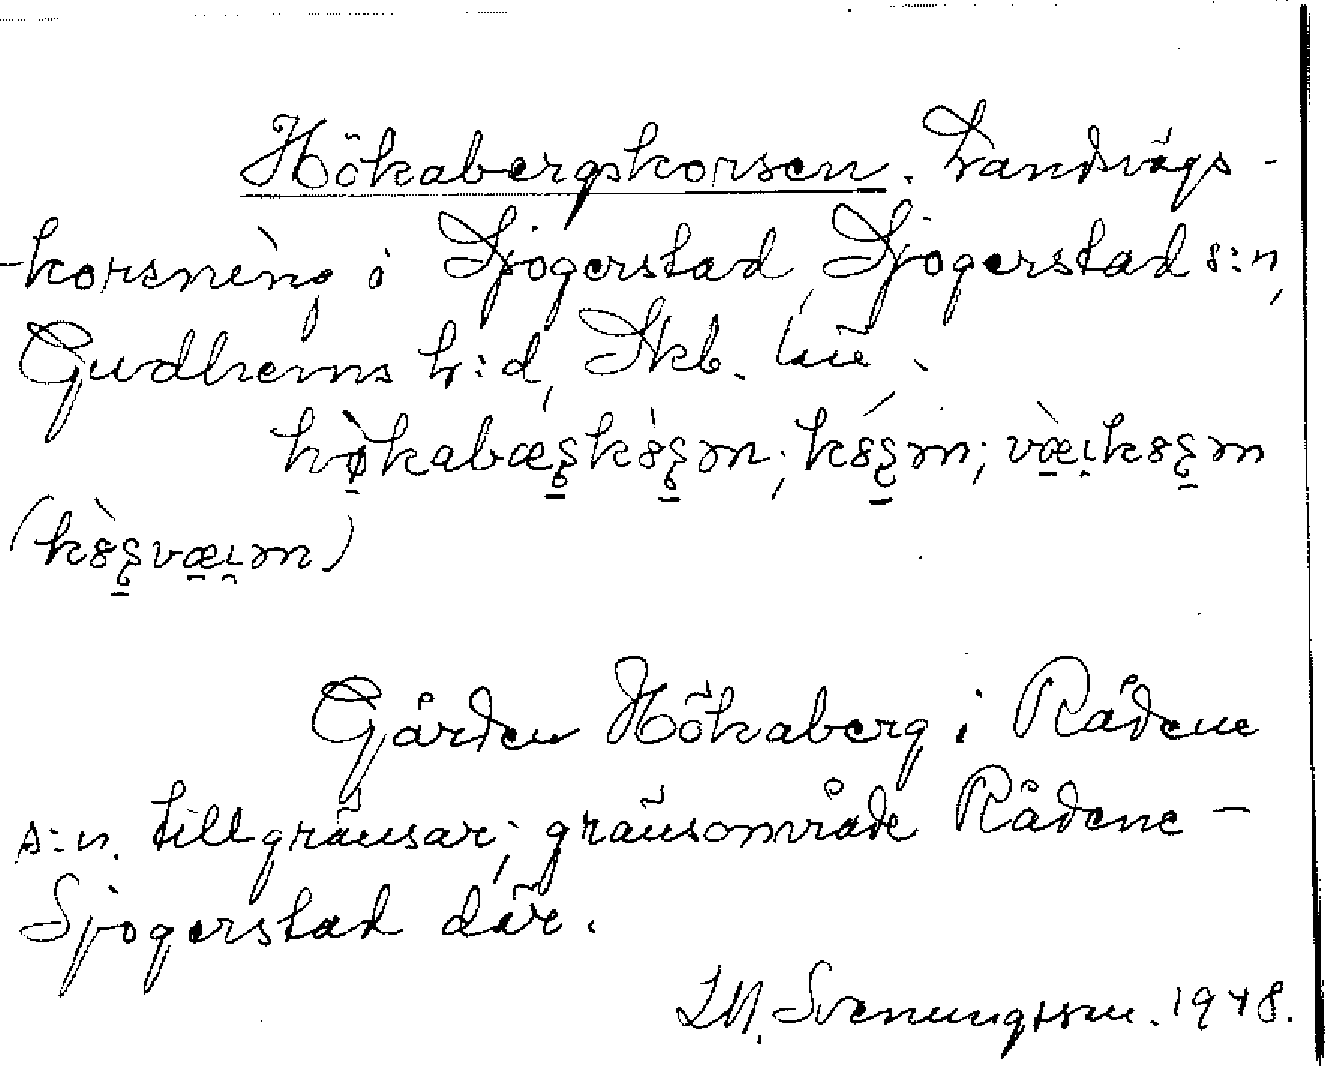 Hökabergskorsen. Landsvägs-
-korsning i Sjogerstad, Sjogerstad s:n,
Gudhems h:d, Skb. län.
(
Gården Hökaberg i Rådene
s:n. tillgränsar; gränsområde Rådene -
Sjogerstad där.
Svenungsson. 1948.